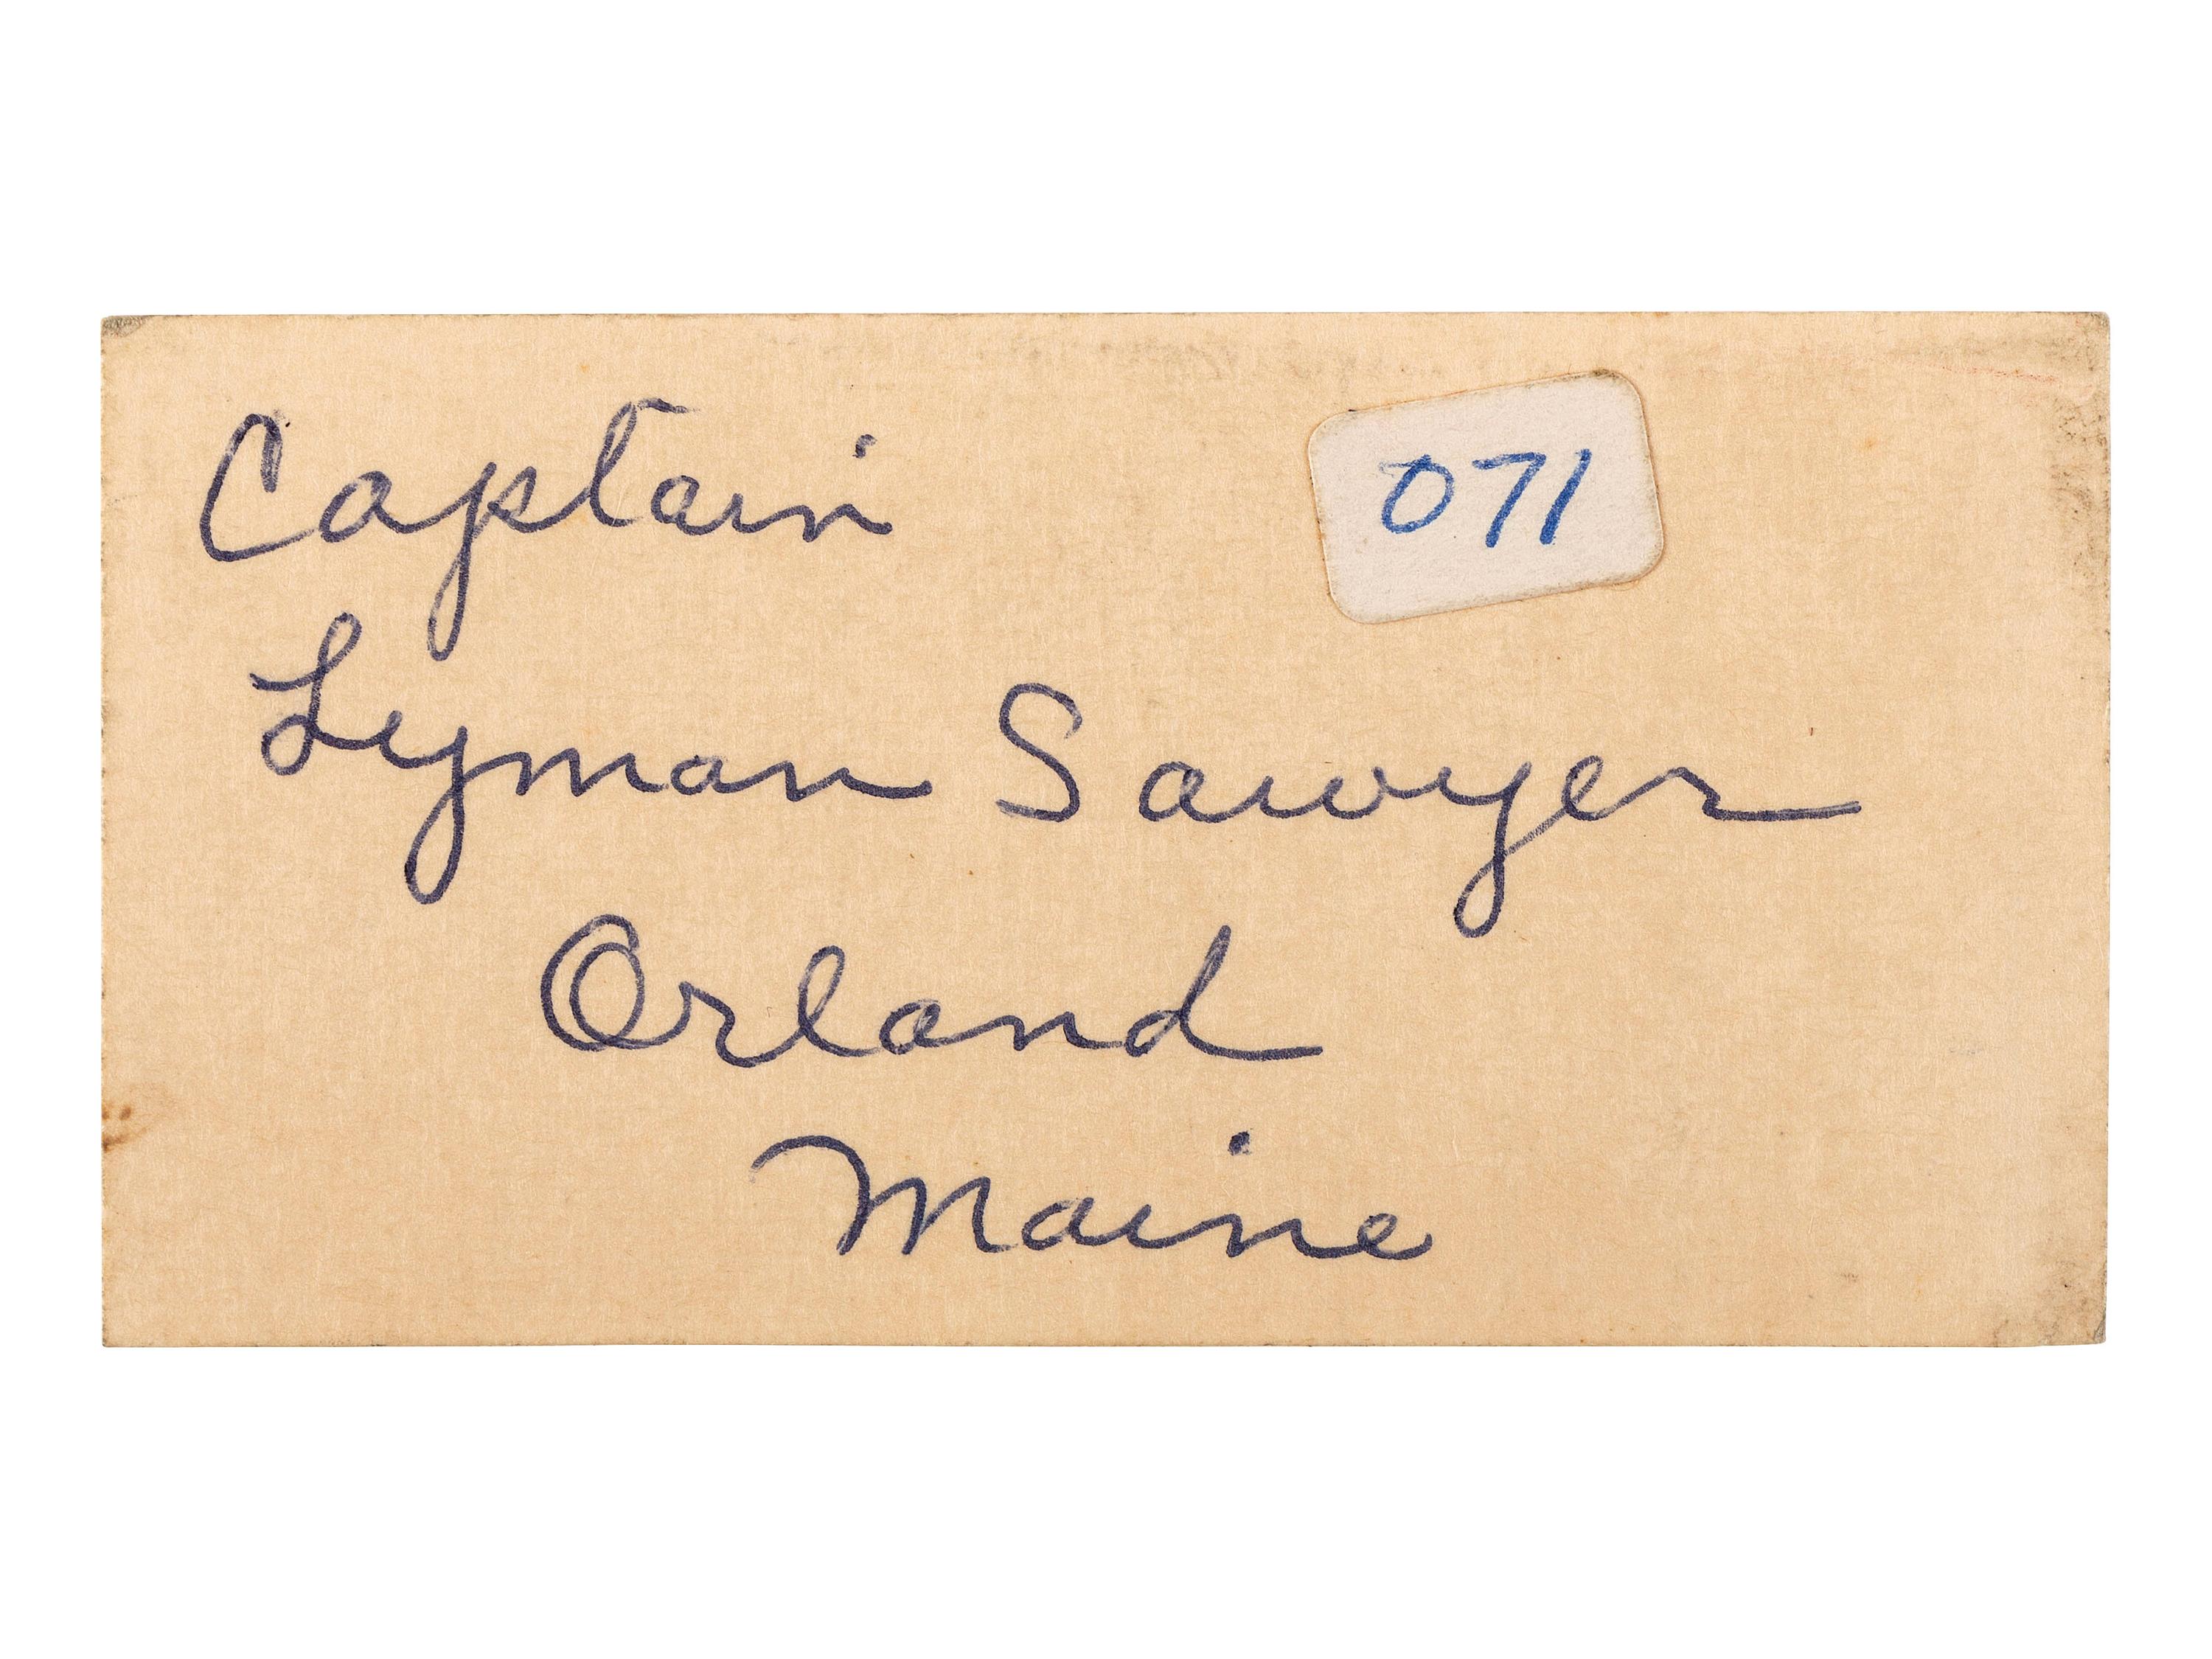 Captain
071
Lyman Sawyer
Orland
Maine